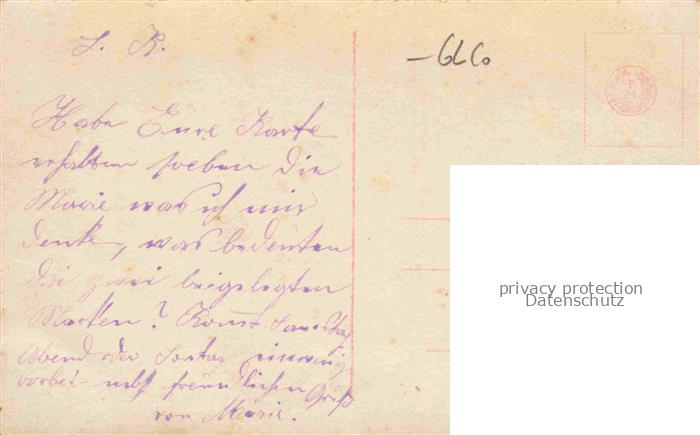 L. K.
-GLCo
Habe Eure Karte
erhalten soeben die
Marie was ich mir
denke, was bedeuten
die zwei beigelegten
Marken? Komt Samstag
Abend oder Sontag
vorbei nebst freundlichen Gruß
von Marie.
privacy protection
Datenschutz